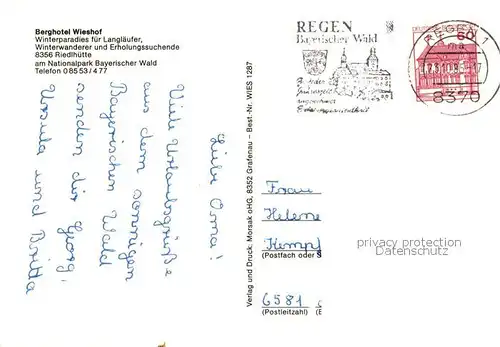 Berghotel Wieshof
Winterparadies für Langläufer,
Winterwanderer und Erholungssuchende
8356 Riedlhütte
am Nationalpark Bayerischer Wald
Telefon 0 85 53 / 4 77
Liebe Oma!
Viele Urlaubsgrüße
aus dem sonnigen
Bayerischen Wald
senden dir Georg,
Ursula und Britta
Verlag und Druck: Morsak oHG, 8352 Grafenau – Best.-Nr. WIES 1287
REGEN
Bayerischer Wald
REGEN 1
8370
60
Frau
Helene
Kempf
(Postfach oder S
6581
(Postleitzahl)
privacy protection
Datenschutz